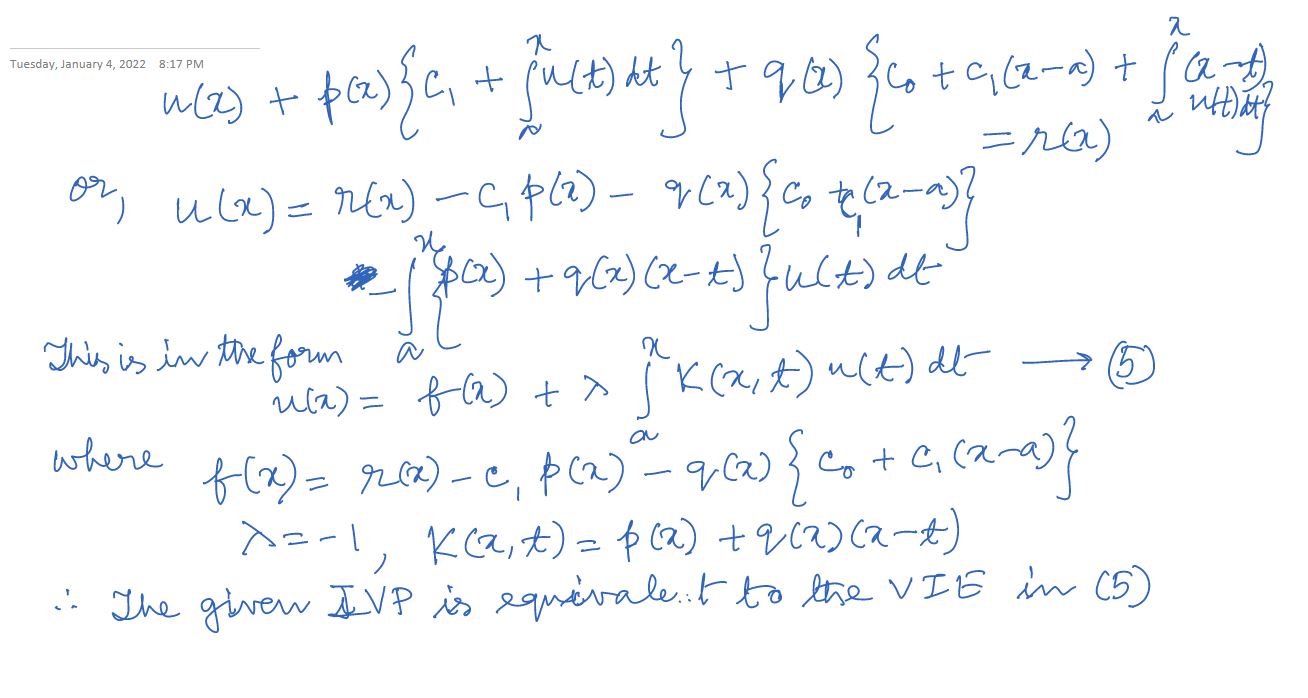 Tuesday, January 4, 2022 8:17 PM
u(x) + p(x) { c₁ + ∫ₐˣ u(t) dt } + q(x) { c₀ + c₁(x-a) + ∫ₐˣ (x-t)
u(t) dt }
= r(x)
or, u(x) = r(x) - c₁ p(x) - q(x) { c₀ + c₁(x-a) }
- ∫ₐˣ { p(x) + q(x)(x-t) } u(t) dt
This is in the form
u(x) = f(x) + λ ∫ₐˣ K(x,t) u(t) dt ⟶ (5)
where f(x) = r(x) - c₁ p(x) - q(x) { c₀ + c₁(x-a) }
λ = -1, K(x,t) = p(x) + q(x)(x-t)
∴ The given IVP is equivalent to the VIE in (5)